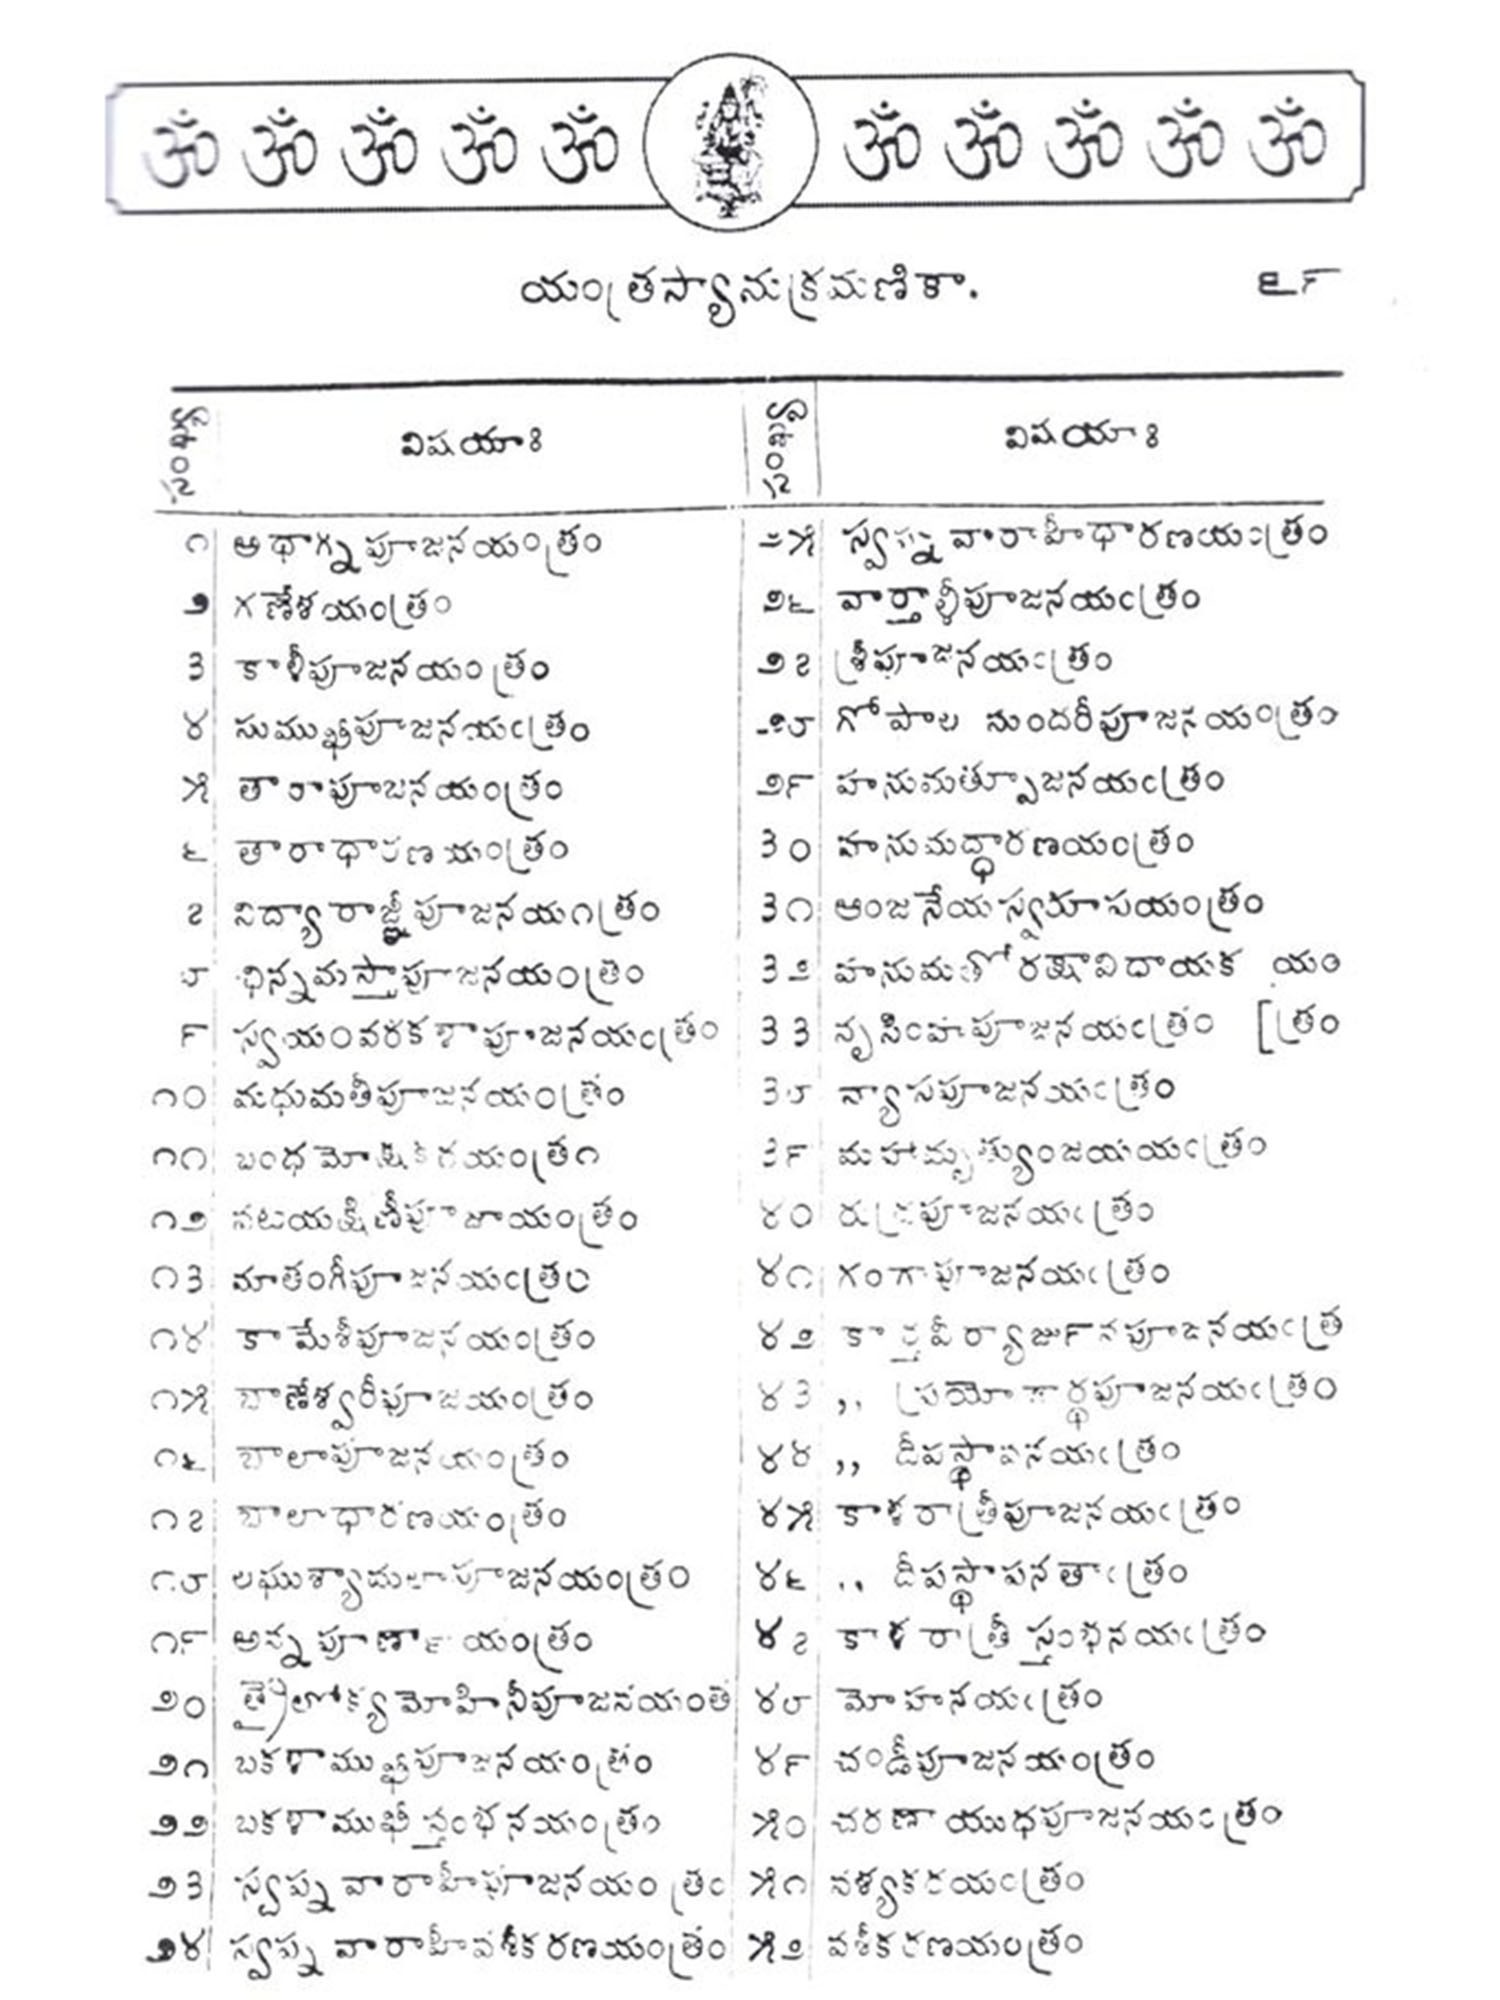 ॐ ॐ ॐ ॐ ॐ ॐ ॐ ॐ ॐ ॐ
యంత్రస్యానుక్రమణికా. ౬౯
సంఖ్య విషయాః
౧ అథాగ్నపూజనయంత్రం
౨ గణేశయంత్రం
౩ కాళీపూజనయంత్రం
౪ సుముఖీపూజనయంత్రం
౫ తారాపూజనయంత్రం
౬ తారాధారణయంత్రం
౭ విద్యారాజ్ఞీపూజనయంత్రం
౮ ఛిన్నమస్తాపూజనయంత్రం
౯ స్వయంవరకళాపూజనయంత్రం
౧౦ మధుమతీపూజనయంత్రం
౧౧ బంధమోక్షకరయంత్రం
౧౨ వటయక్షిణీపూజాయంత్రం
౧౩ మాతంగీపూజనయంత్రం
౧౪ కామేశీపూజనయంత్రం
౧౫ బాణేశ్వరీపూజయంత్రం
౧౬ బాలాపూజనయంత్రం
౧౭ బాలాధారణయంత్రం
౧౮ లఘుశ్యామలాపూజనయంత్రం
౧౯ అన్నపూర్ణాయంత్రం
౨౦ త్రైలోక్యమోహినీపూజనయంత
౨౧ బకళాముఖీపూజనయంత్రం
౨౨ బకళాముఖీస్తంభనయంత్రం
౨౩ స్వప్నవారాహీపూజనయంత్రం
౨౪ స్వప్నవారాహీవశీకరణయంత్రం
సంఖ్య విషయాః
౨౫ స్వప్నవారాహీధారణయంత్రం
౨౬ వార్తాళీపూజనయంత్రం
౨౭ శ్రీపూజనయంత్రం
౨౮ గోపాల సుందరీపూజనయంత్రం
౨౯ హనుమత్పూజనయంత్రం
౩౦ హనుమద్ధారణయంత్రం
౩౧ ఆంజనేయస్వరూపయంత్రం
౩౨ హనుమతోరక్షావిధాయక యం
౩౩ నృసింహపూజనయంత్రం [త్రం
౩౮ న్యాసపూజనయంత్రం
౩౯ మహామృత్యుంజయయంత్రం
౪౦ రుద్రపూజనయంత్రం
౪౧ గంగాపూజనయంత్రం
౪౨ కార్తవీర్యార్జునపూజనయంత్ర
౪౩ ,, ప్రయోగార్థపూజనయంత్రం
౪౪ ,, దీపస్థాపనయంత్రం
౪౫ కాళరాత్రీపూజనయంత్రం
౪౬ ,, దీపస్థాపనతాంత్రం
౪౭ కాళరాత్రీ స్తంభనయంత్రం
౪౮ మోహనయంత్రం
౪౯ చండీపూజనయంత్రం
౫౦ చరణాయుధపూజనయంత్రం
౫౧ వశ్యకరయంత్రం
౫౨ వశీకరణయంత్రం